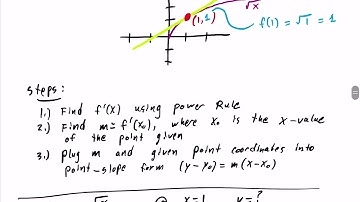 √x
(1,1)
f(1) = √1 = 1
steps:
1.) Find f'(x) using power Rule
2.) Find m = f'(x₀), where x₀ is the x-value
of the point given
3.) Plug m and given point coordinates into
point-slope form (y-y₀) = m(x-x₀)